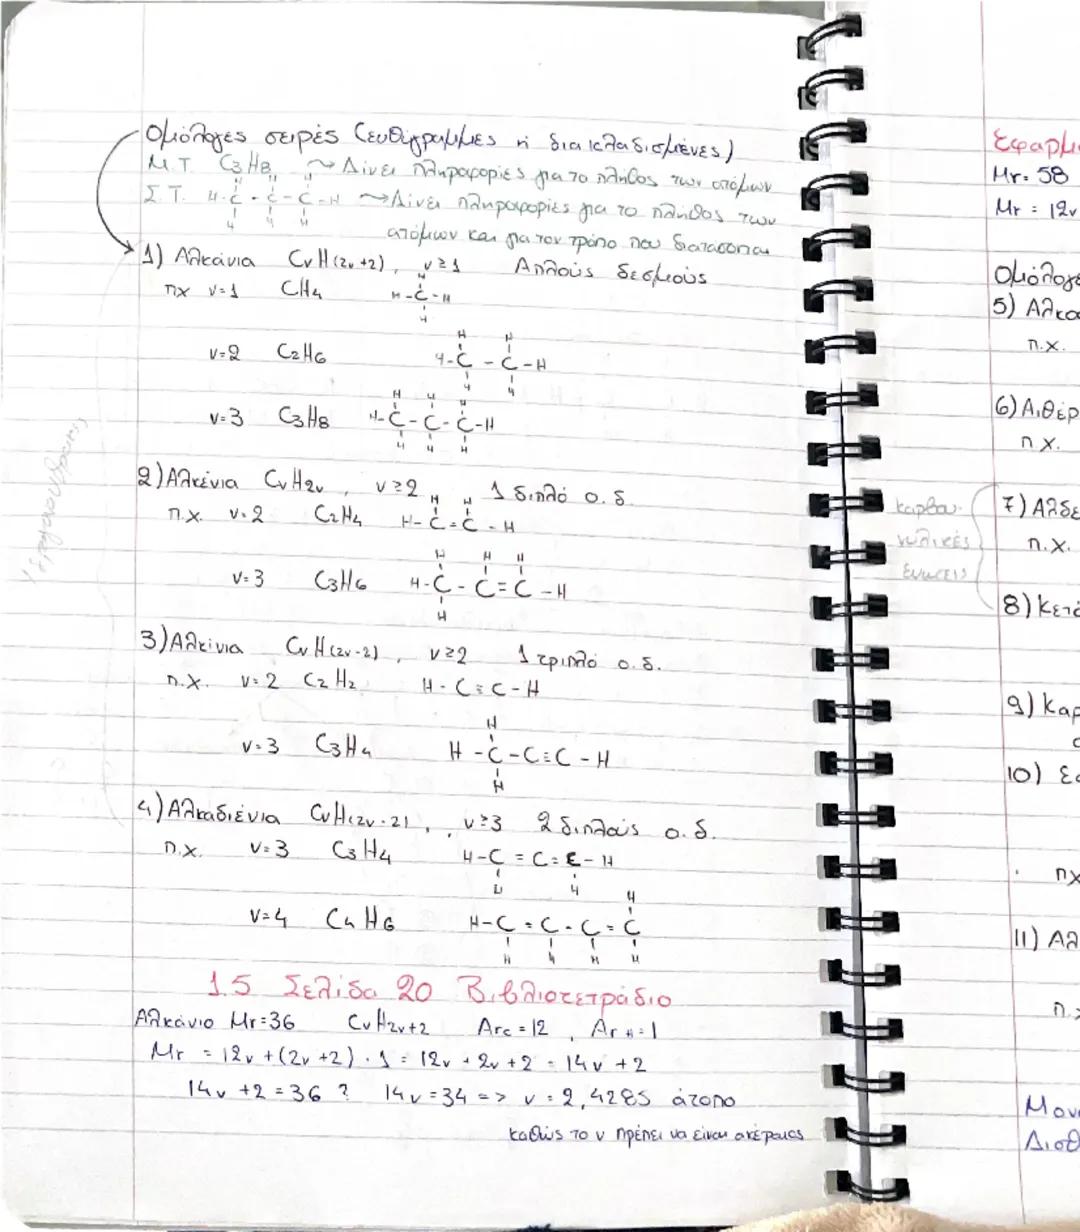 Ομόλογες σειρές (ευθύγραμμες ή διακλαδισμένες)
Μ.Τ. C3H8 ~> Δίνει πληροφορίες για το πλήθος των ατόμων
H H H
Σ.Τ. H-C-C-C-H ~> Δίνει πληροφορίες για το πλήθος των
H H H
ατόμων και για τον τρόπο που διατάσσονται
1) Αλκάνια CνH(2ν+2), ν≥1 Απλούς δεσμούς
H
πχ ν=1 CH4 H-C-H
H
H H
ν=2 C2H6 H-C-C-H
H H
H H H
ν=3 C3H8 H-C-C-C-H
H H H
Υδρογονάνθρακες
2) Αλκένια CνH2ν, ν≥2 1 διπλό ο.δ.
H H
π.χ. ν=2 C2H4 H-C=C-H
H H H
ν=3 C3H6 H-C-C=C-H
H
3) Αλκίνια CνH(2ν-2), ν≥2 1 τριπλό ο.δ.
π.χ. ν=2 C2H2 H-C≡C-H
H
ν=3 C3H4 H-C-C≡C-H
H
4) Αλκαδιένια CνH(2ν-2), ν≥3 2 διπλούς ο.δ.
π.χ. ν=3 C3H4 H-C=C=C-H
H H
H
ν=4 C4H6 H-C=C-C=C
H H H H
1.5 Σελίδα 20 Βιβλιοτετράδιο
Αλκάνιο Mr=36 CνH2ν+2 Arc=12, ArH=1
Mr = 12ν+(2ν+2)·1 = 12ν+2ν+2 = 14ν+2
14ν+2=36 ? 14ν=34 => ν=2,4285 άτοπο
καθώς το ν πρέπει να είναι ακέραιος
Εφαρμ
Mr=58
Mr = 12ν
Ομόλογε
5) Αλκο
π.χ.
6) Αιθέρ
π.χ.
καρβο-
νυλικές
ενώσεις
7) Αλδε
π.χ.
8) Κετό
9) Καρ
10) Εσ
πχ
11) Αλ
π.χ
Μον
Διοθ